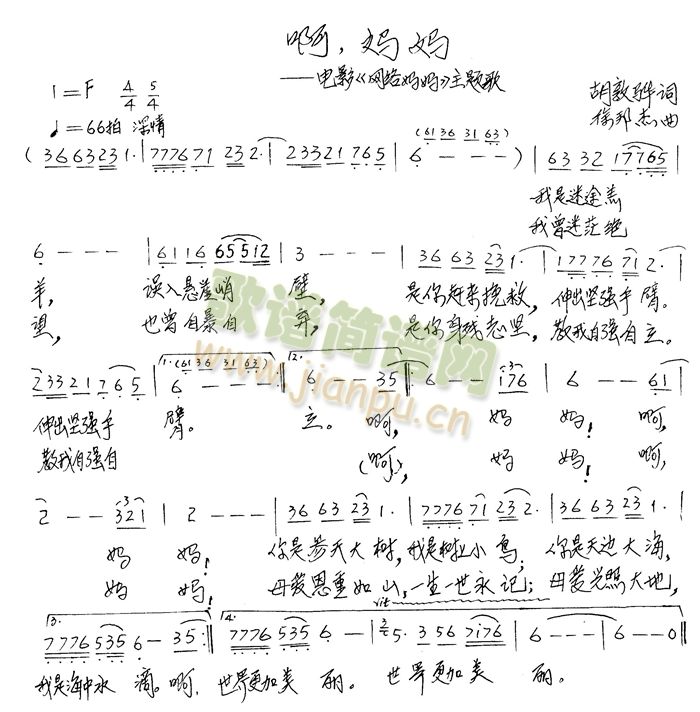 啊，妈妈
——电影《网络妈妈》主题歌
1=F 4/4 5/4
胡敦骅词
♩=66拍 深情
徐邦杰曲
(61 36 31 63)
( 36 63 23 1· | 7776 71 23 2· | 2 33 21 7 65 | 6 - - - ) | 63 32 17765
我是迷途羔
我曾迷茫绝
6 - - - | 61 16 65 512 | 3 - - - | 36 63 23 1· | 17776 71 2·
羊， 误入悬崖峭 壁， 是你赶来挽救， 伸出坚强手 臂。
望， 也曾自暴自 弃， 是你身残志坚， 教我自强自立。
1.(61 36 31 63) 2.
2 33 21 7 65 | 6 - - - | 6 - - 35 | 6 - - 176 | 6 - - 61
伸出坚强手 臂。 立。 啊， 妈 妈！ 啊，
教我自强自 (啊，) 妈 妈！ 啊，
2 - - 321 | 2 - - - | 36 63 23 1· | 7776 71 23 2· | 36 63 23 1·
妈 妈！ 你是参天大树，我是树上小鸟； 你是天边大海，
妈 妈！ 母爱恩重如山，一生一世永记； 母爱光照大地，
rit
3. 4.
7776 535 6 - 35 :| 7776 535 6 - | 5· 3 56 7176 | 6 - - - | 6 - - 0 ||
我是海中水 滴。啊， 世界更加美 丽。 世界更加美 丽。
歌谱简谱网
www.jianpu.cn